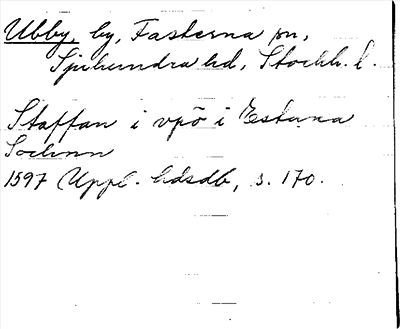 Ubby, by, Fasterna sn,
Sjuhundra hd, Stockh. l.
Staffan i vpö i Estuna
Sochnn
1597 Uppl. hdsdb, s. 170.